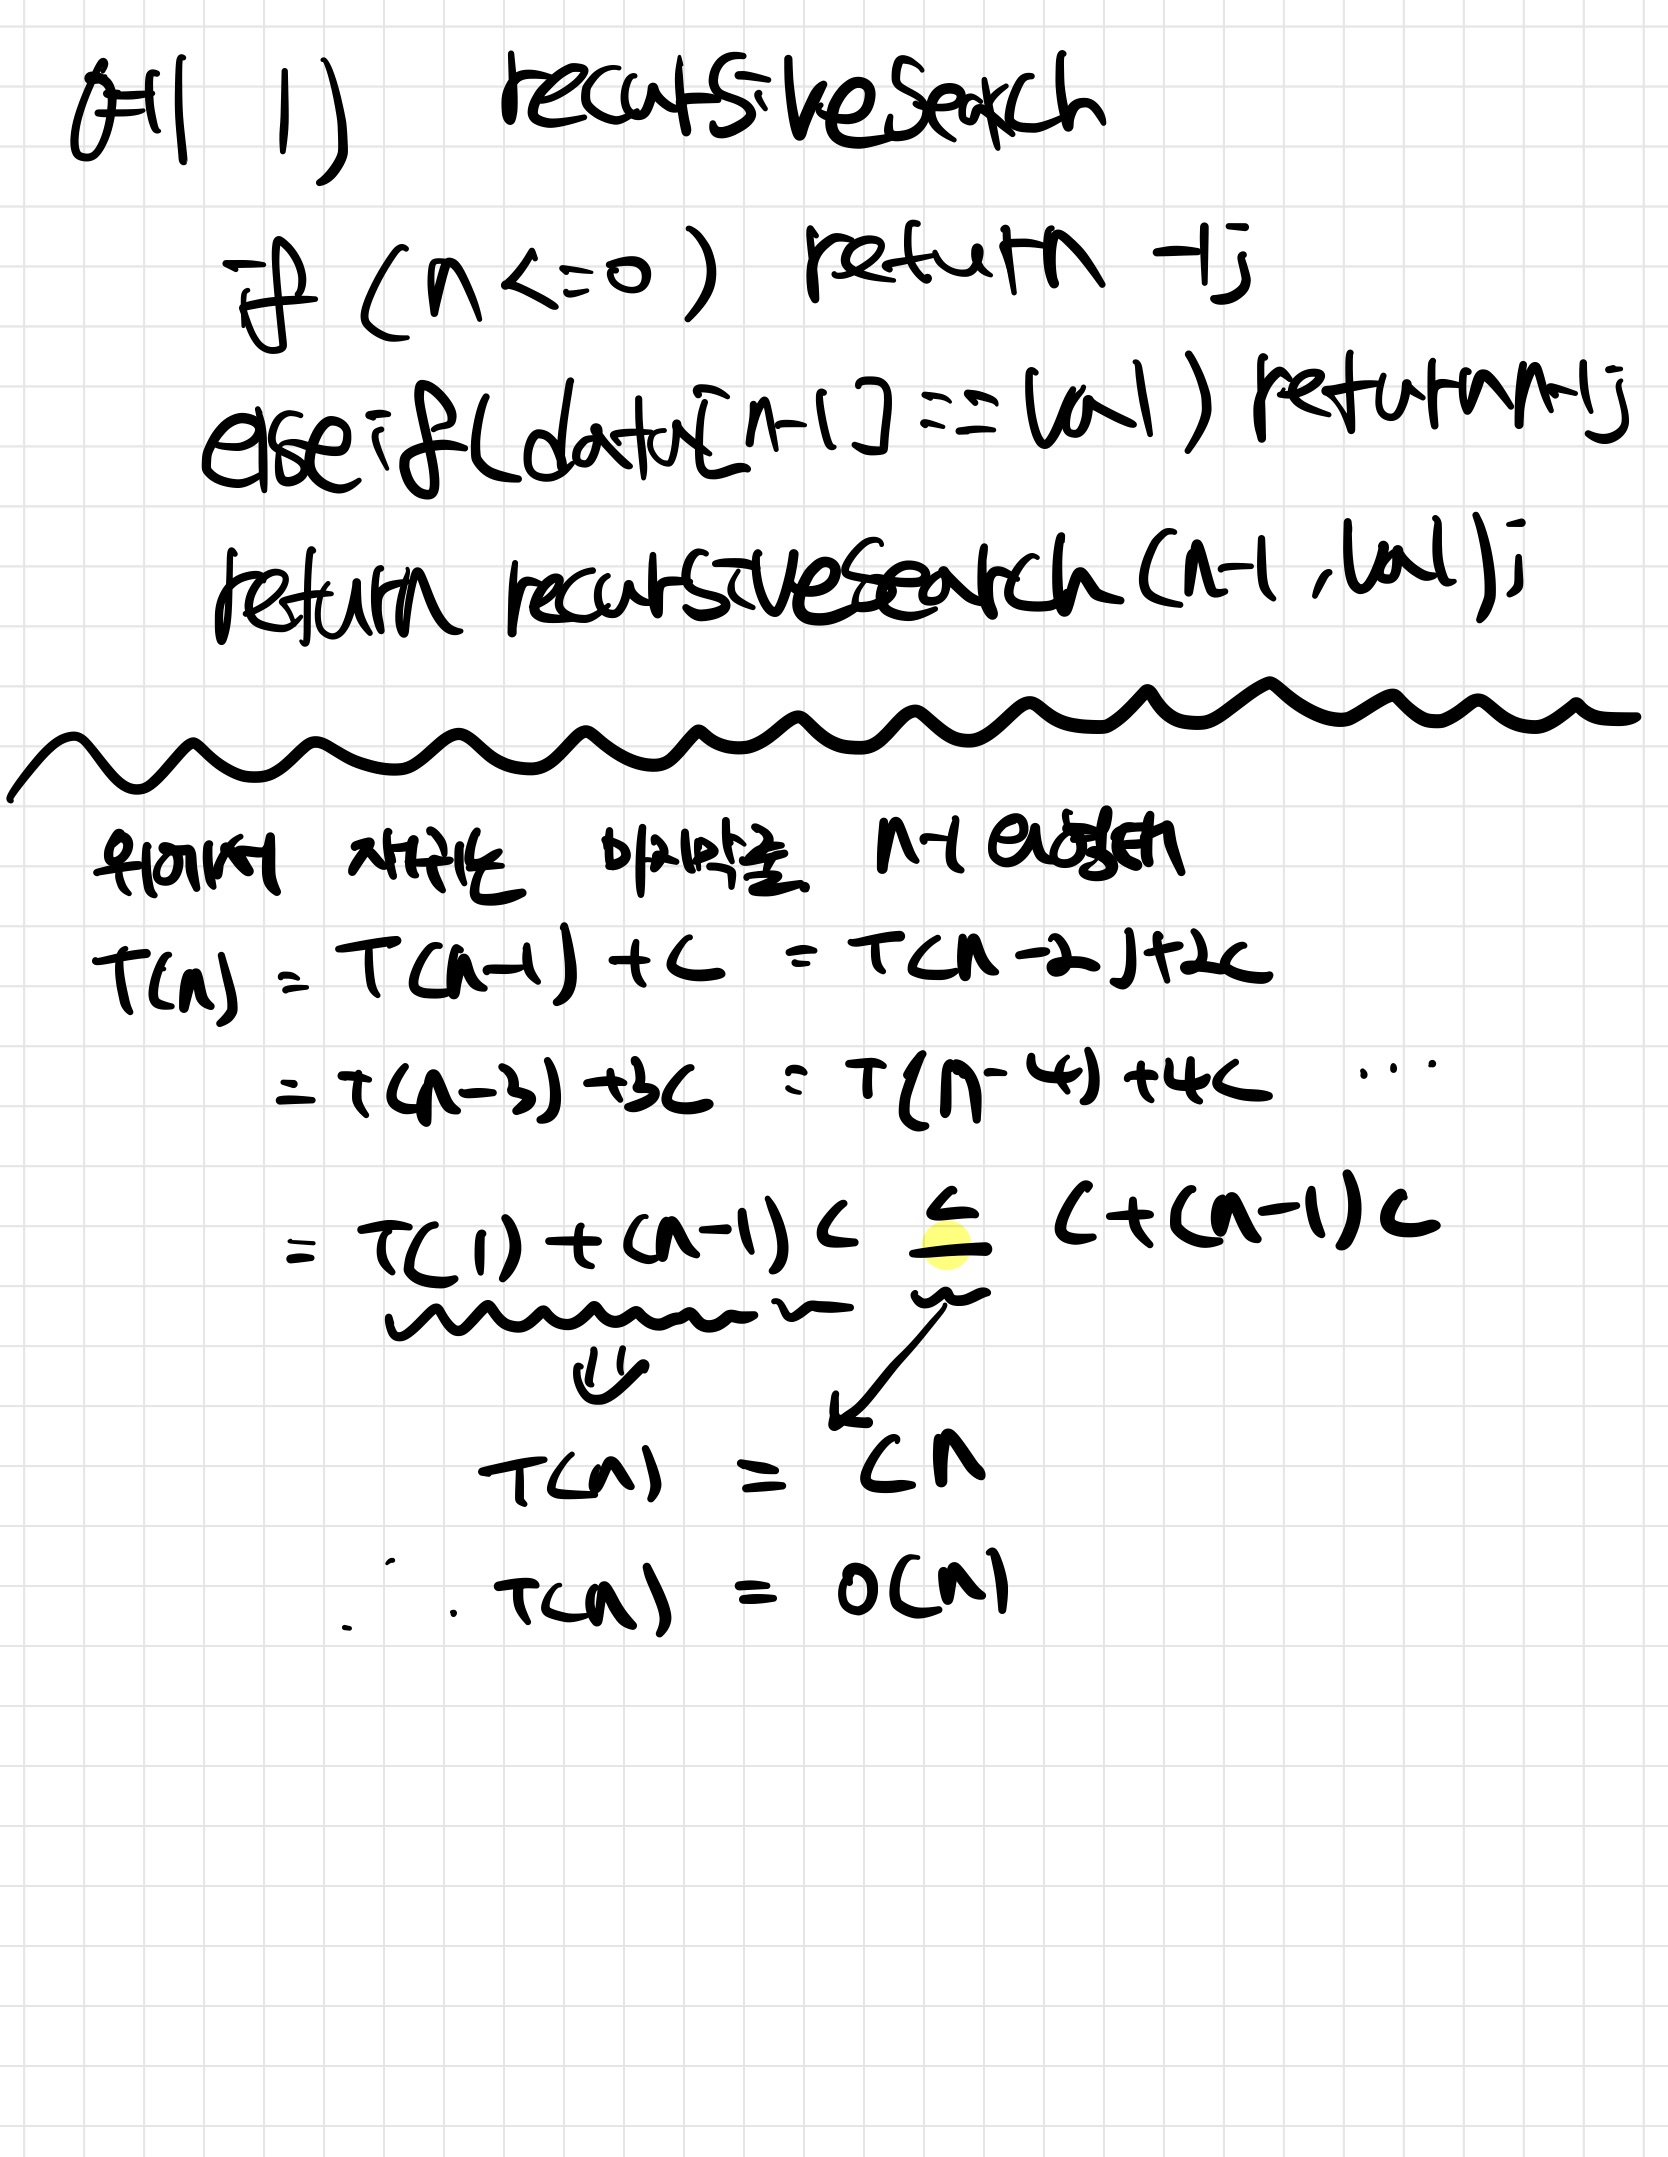 예 1) recursiveSearch
if (n<=0) return -1;
else if(data[n-1]==val) return n-1;
return recursiveSearch(n-1, val);
위에서 자신은 마지막줄 n-1
T(n) = T(n-1)+c = T(n-2)+2c
= T(n-3)+3c = T(n-4)+4c ...
= T(1)+(n-1)c ≤ c+(n-1)c
T(n) = cn
∴ T(n) = O(n)